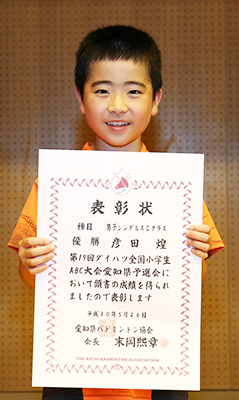 表彰状
種目 男子シングルスCクラス
優勝 彦田 煌
第19回ダイハツ全国小学生
ABC大会愛知県予選会に
おいて頭書の成績を得られ
ましたので表彰します
平成30年5月26日
愛知県バドミントン協会
会長 末岡熙章
THE AICHI BADMINTON ASSOCIATION